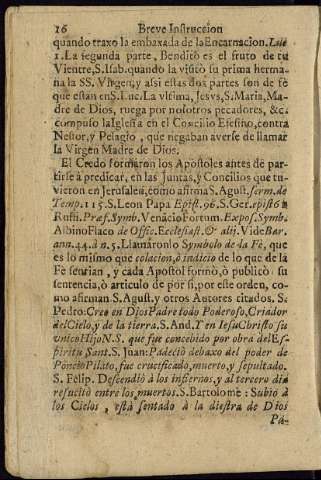 16 Breve Instruccion
quando traxo la embaxada de la Encarnacion. Luc.
1. La segunda parte, Bendito es el fruto de tu
Vientre, S. Isab. quando la visitò su prima herma-
na la SS. Virgen, y assi estas dos partes son de fé
que estàn en S. Luc. La vltima, Jesvs, S. Maria, Ma-
dre de Dios, ruega por nosotros pecadores, &c.
compuso la Iglesia en el Concilio Efesino, contra
Nestor, y Pelagio, que negaban averse de llamar
la Virgen Madre de Dios.
El Credo formaron los Apostoles antes de par-
tirse à predicar, en las Juntas, y Concilios que tu-
vieron en Jerusalen, como afirma S. Agust. serm. de
Temp. 115. S. Leon Papa Epist. 96. S. Ger. epist. 61
Rufi. Præf. Symb. Venacio Fortum. Expos. Symb.
Albino Flaco de Offic. Ecclesiast. & alij. Vide Bar.
ann. 44. à n. 5. Llamaronlo Symbolo de la Fè, que
es lo mismo que colacion, ò indicio de lo que de la
Fè sentian, y cada Apostol formò, ò publicò su
sentencia, ò articulo de por sì, por este orden, co-
mo afirman S. Agust. y otros Autores citados. S.
Pedro: Creo en Dios Padre todo Poderoso, Criador
del Cielo, y de la tierra. S. And. Y en Iesu Christo su
vnico Hijo N. S. que fue concebido por obra del Es-
piritu Sant. S. Juan: Padeciò debaxo del poder de
Pōncio Pilato, fue crucificado, muerto, y sepultado.
S. Felip. Descendiò à los infiernos, y al tercero dia
resucitò entre los muertos. S. Bartolome: Subiò à
los Cielos, està sentado à la diestra de Dios
Pa-